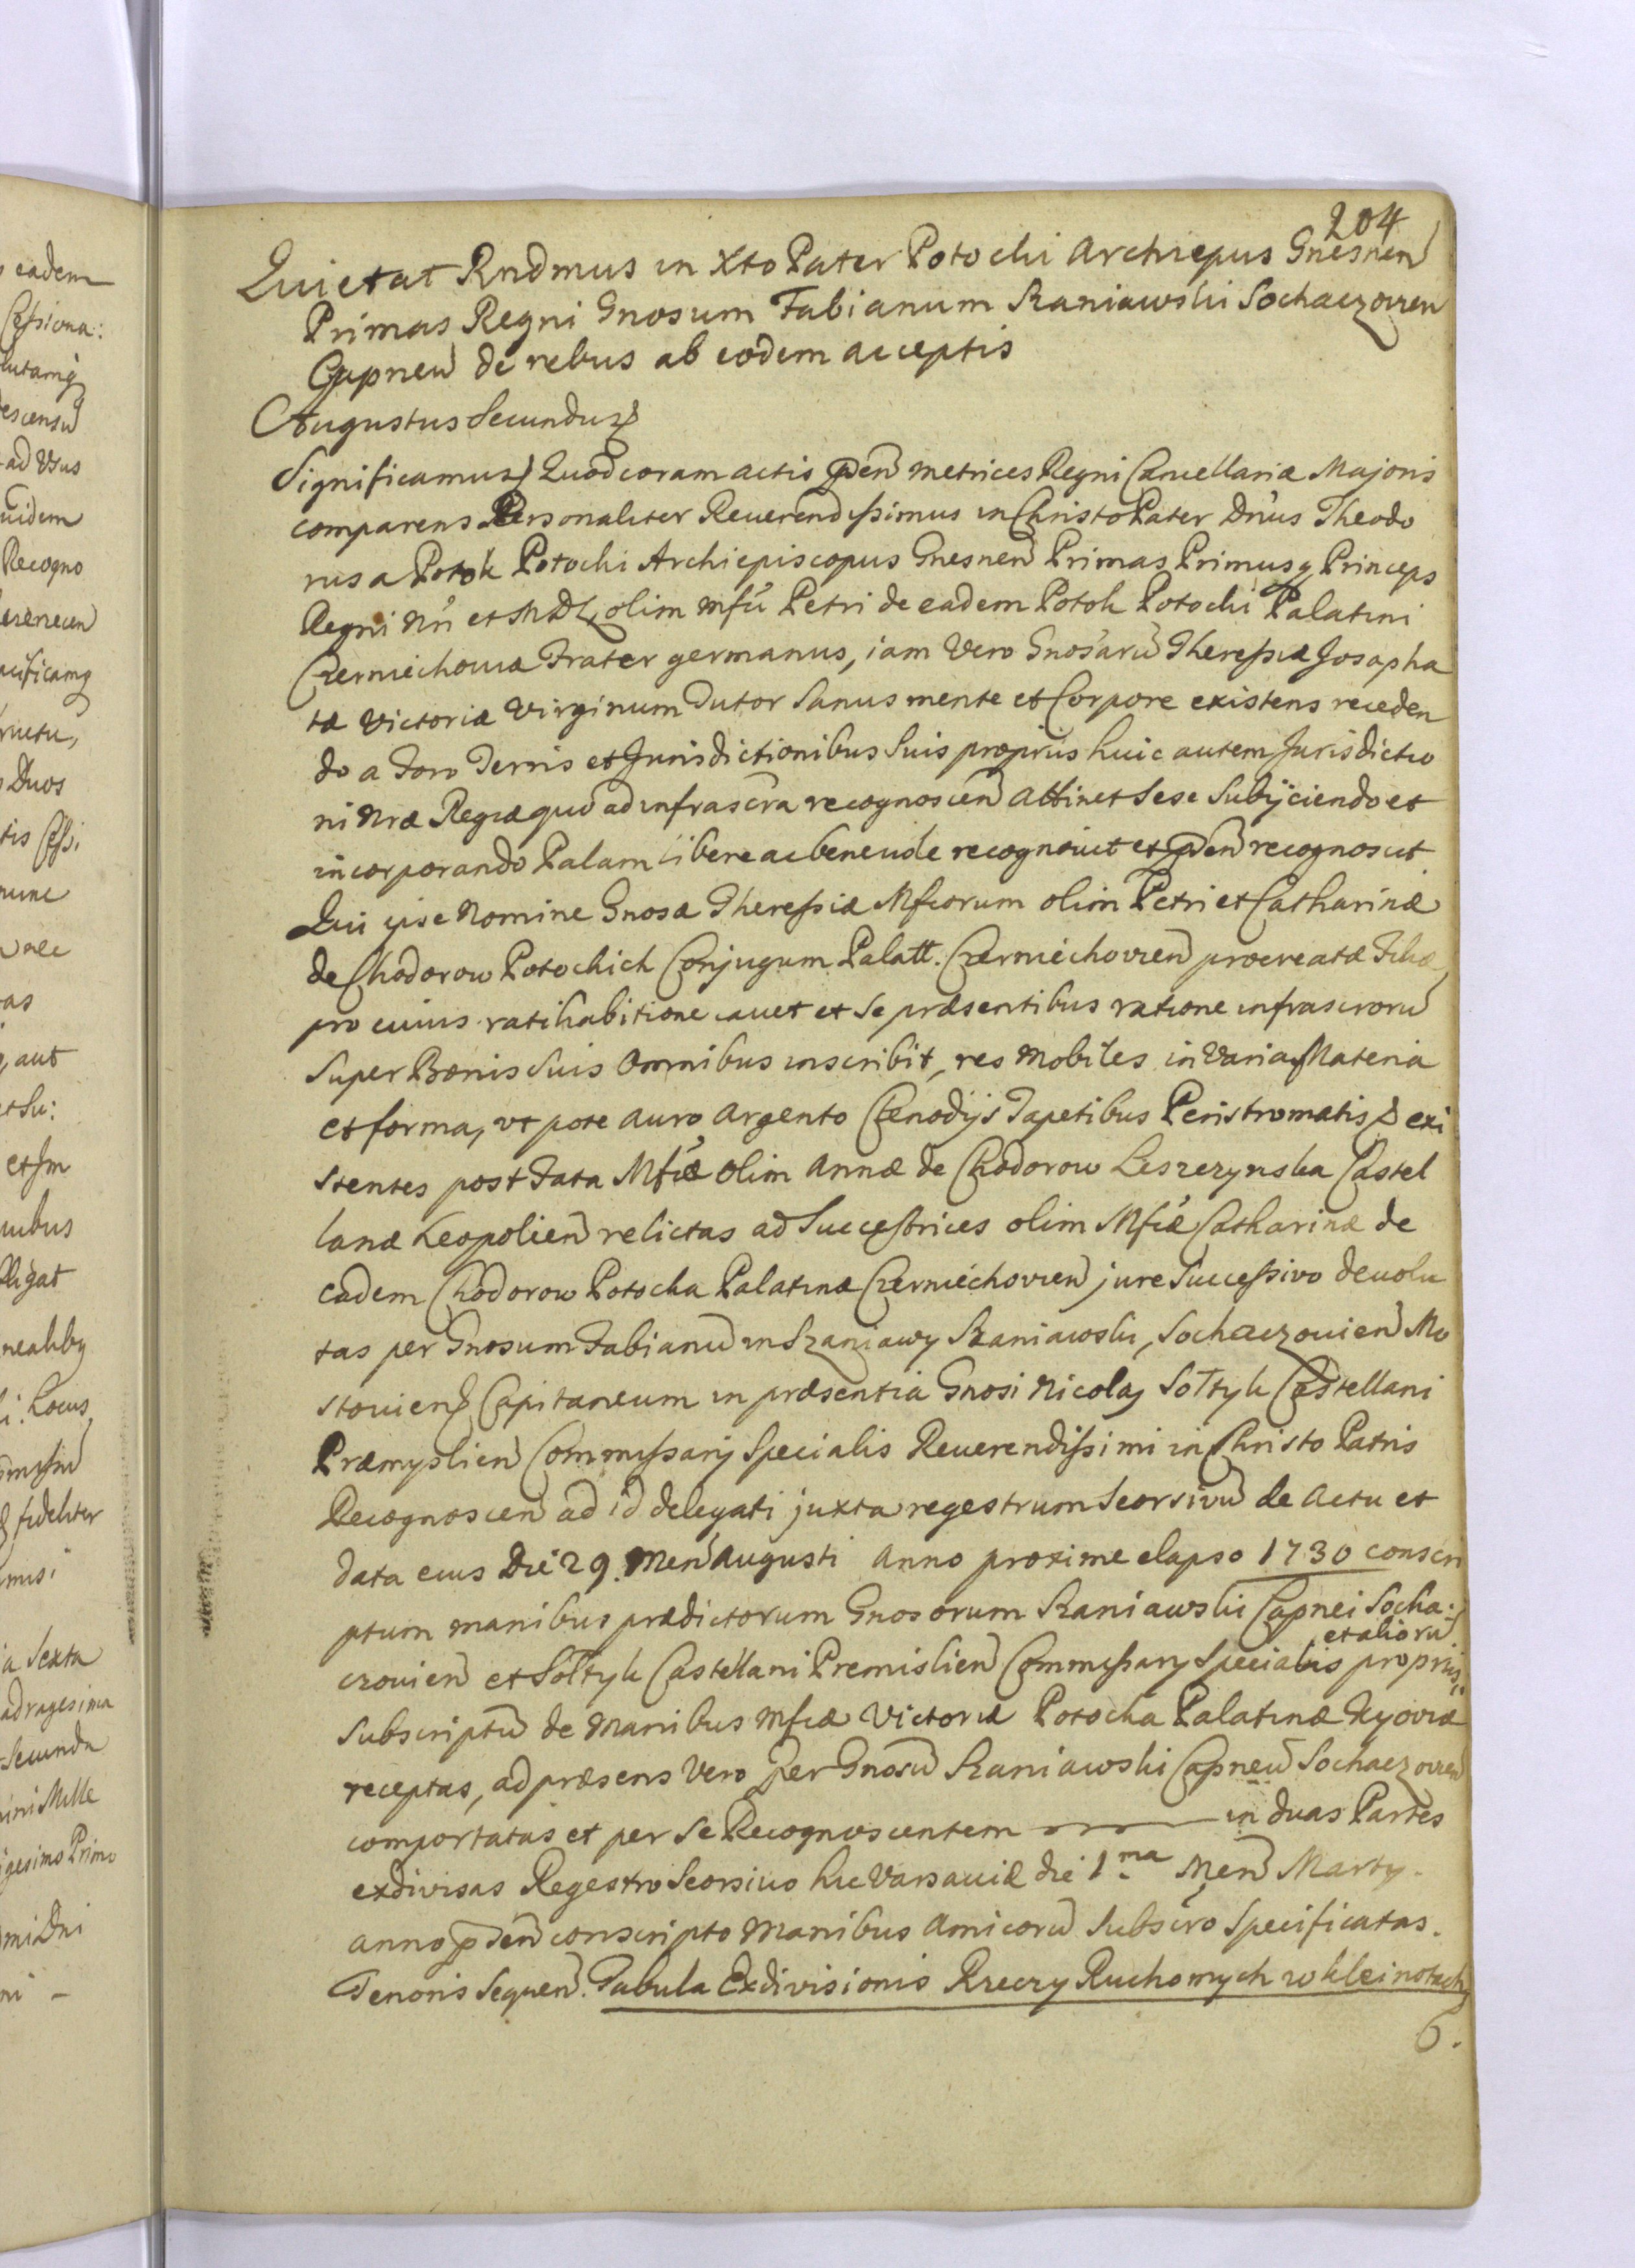 204
Quietat Rndmus in Xto Pater Potocki Archiepus Gnesnen
Primas Regni Gnosum Fabianum Szaniawski Sochaczovien
Capneu de rebus ab eodem acceptis
Augustus Secundus
Significamus Quod coram actis pden metrices Regni Cancellariæ Majoris
comparens Personaliter Reuerendissimus in Christo Pater Dnus Theodo
rus a Potok Potocki Archiepiscopus Gnesnen Primas Primusq Princeps
Regni Nri et MDL, olim Mfci Petri de eadem Potok Potocki Palatini
Czerniechoviæ Frater germanus, iam Vero Gnosaru Theressiæ Josapha
tæ Victoriæ Virginum Tutor Sanus mente et Corpore existens receden
do a Foro Terris et Jurisdictionibus Suis propriis huic autem Jurisdictio
ni Nræ Regiæ quo ad infrascra recognoscen attinet Sese Subijciendo et
incorporando Palam libere ac beneuole recognouit et pden recognoscit
Quia ipse Nomine Gnosæ Theressiæ Mfcorum olim Petri et Catharinæ
de Chodorow Potockich Conjugum Palatt. Czerniechovien procreatæ Filiæ,
pro cuius ratihabitione cauet et Se præsentibus ratione infrascroru
Super Bonis Suis Omnibus inscribit, res Mobiles in Varia Materia
et forma, vt pote Auro Argento Clenodijs Tapetibus Peristromatis exi
stentes post Fata Mfcæ olim Annæ de Chodorow Leszczynska Castel
lanæ Leopolien relictas ad Successtrices olim Mfcæ Catharinæ de
eadem Chodorow Potocka Palatinæ Czerniechovien jure Successivo deuolu
tas per Gnosum Fabianu in Szaniawy Szaniawski, Sochaczouien Mo
stouien Capitaneum in præsentia Gnosi Nicolaj Sołtyk Castellani
Præmyslien Commissarij Specialis Reuerendissimi in Christo Patris
Recognoscen ad id delegati juxta regestrum Seorsiuu de Actu et
data eius Die 29. Men Augusti Anno proxime elapso 1730 conscri
ptum manibus prædictorum Gnosorum Szaniawski Capnei Socha:
czouien et Sołtyk Castellani Premislien Commissarij Specialis et alioru propriis
Subscriptu de Manibus Mfcæ Victoriæ Potocka Palatinæ Kyoviæ
receptas, ad præsens Vero per Gnosu Szaniawski Capneu Sochaczovien
comportatas et per Se Recognoscentem in duas Partes
exdivisas Regestro Seorsiuo hic Varsaviæ die 1ma Men Martij.
anno pden conscripto Manibus Amicoru Subscro Specificatas.
Tenoris Sequen. Tabula Exdivisionis Rzeczy Ruchomych w kleinotach
6.